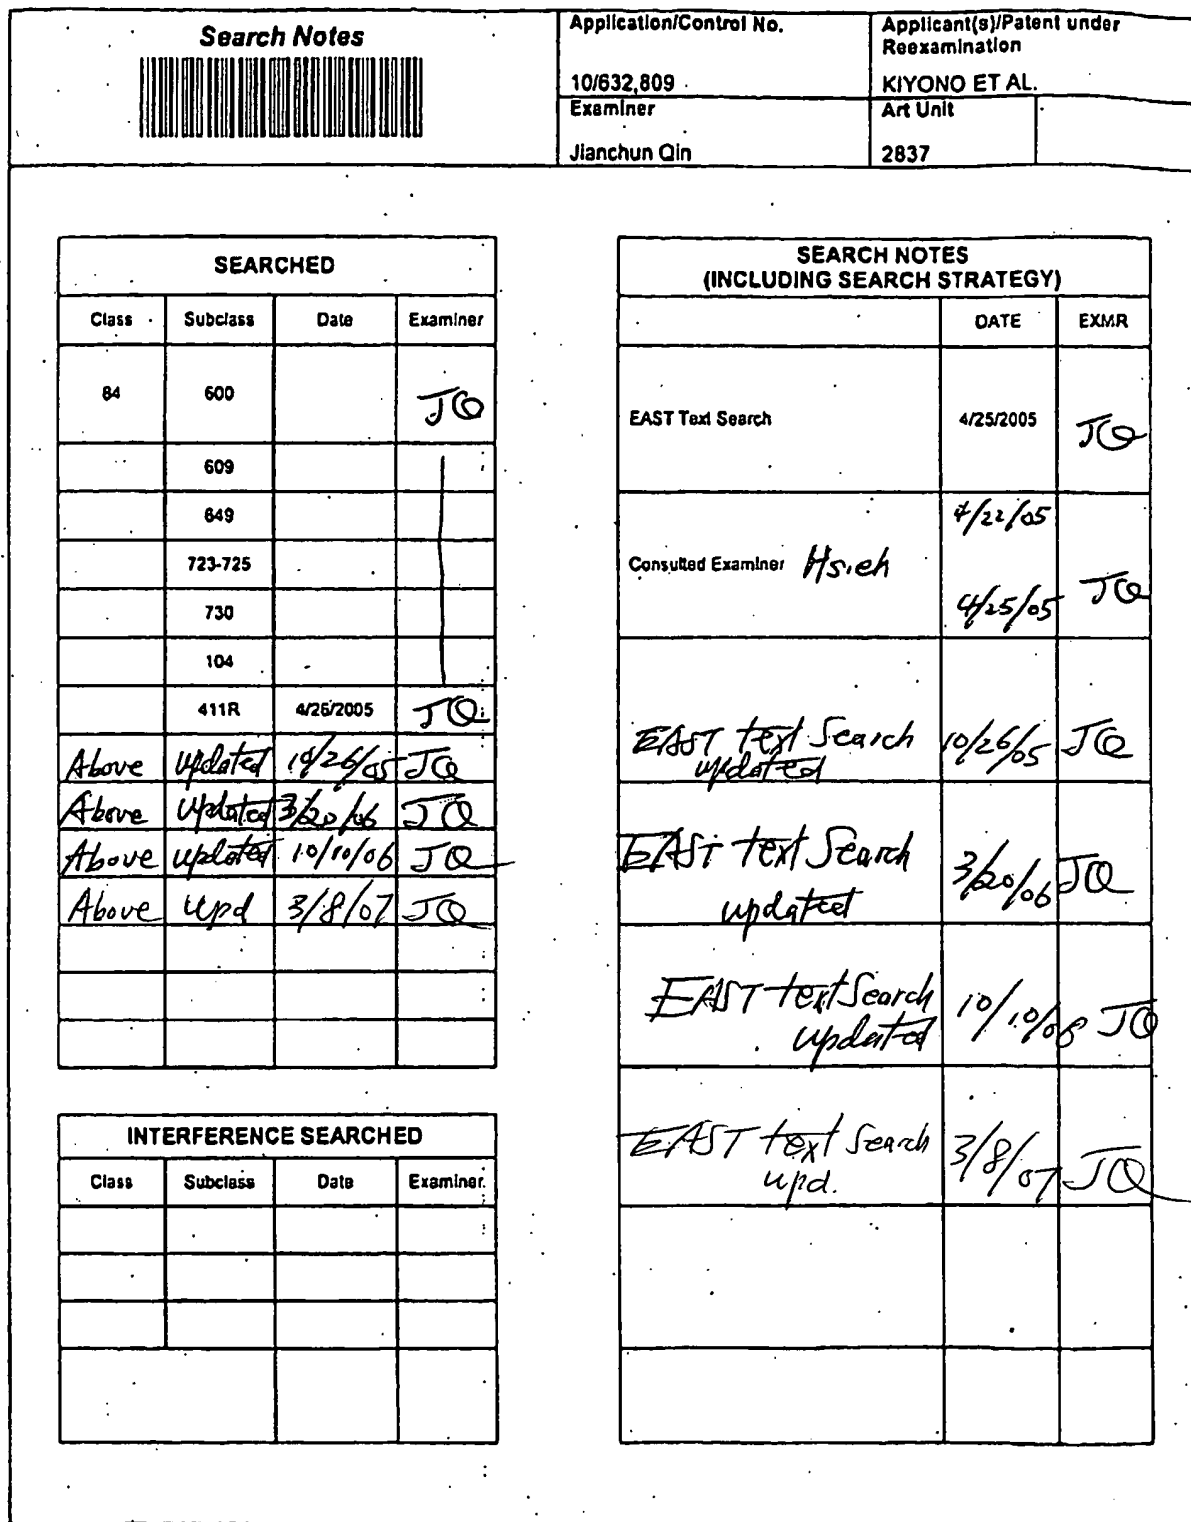 Search Notes
Application/Control No.
Applicant(s)/Patent under
Reexamination
10/632,809
KIYONO ET AL.
Examiner
Art Unit
Jianchun Qin
2837
SEARCHED
Class Subclass Date Examiner
84 600 JQ
609
649
723-725
730
104
411R 4/26/2005 JQ
Above updated 10/26/05 JQ
Above updated 3/20/06 JQ
Above updated 10/10/06 JQ
Above upd 3/8/07 JQ
INTERFERENCE SEARCHED
Class Subclass Date Examiner
SEARCH NOTES
(INCLUDING SEARCH STRATEGY)
DATE EXMR
EAST Text Search 4/25/2005 JQ
4/22/05
Consulted Examiner Hsieh
4/25/05 JQ
EAST text Search 10/26/05 JQ
updated
EAST text Search 3/20/06 JQ
updated
EAST text Search 10/10/06 JQ
updated
EAST text Search 3/8/07 JQ
upd.